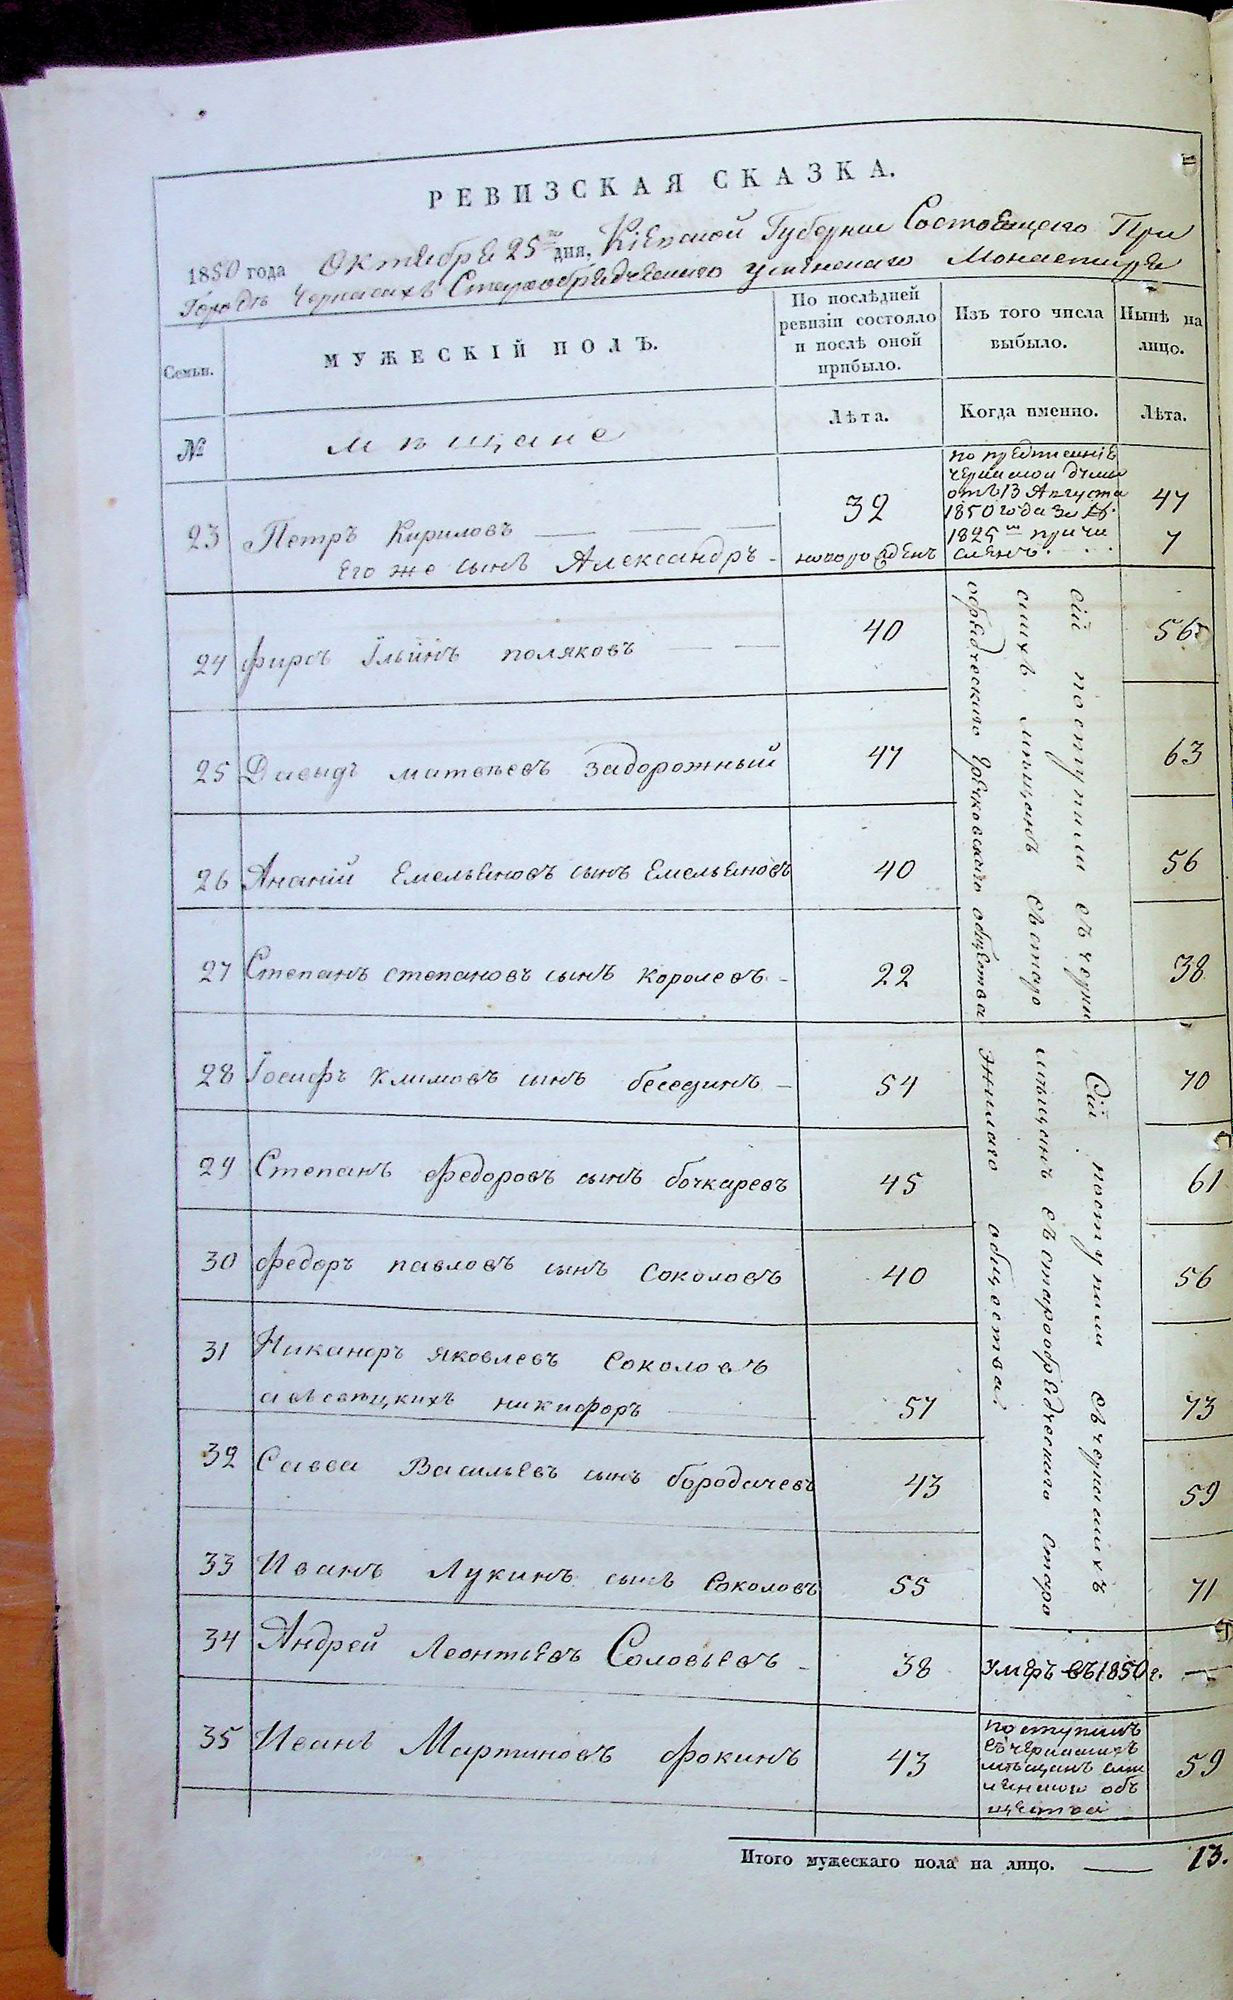 РЕВИЗСКАЯ СКАЗКА.
1850 года Октября 25го дня, Кіевской Губерніи Состоящего При
Городѣ Черкасахъ Старообрядческаго успенскаго Монастыря
Семьи.
МУЖЕСКІЙ ПОЛЪ.
По послѣдней ревизіи состояло и послѣ оной прибыло.
Изъ того числа выбыло.
Нынѣ на лицо.
№
мѣщане
Лѣта.
Когда именно.
Лѣта.
23 Петръ Кириловъ 32 47
Его же сынъ Александръ новорожденъ 7
по предписанію
черкаской думы
отъ 13 Августа
1850 года за №
1825м причи
сленъ.
24 фирсъ Ільинъ поляковъ 40 56
25 Давыдъ матвѣевъ Задорожный 47 63
26 Ананій Емельяновъ сынъ Емельяновъ 40 56
27 Степанъ степановъ сынъ королевъ 22 38
сій поступили съ черка
скихъ мѣщанъ съ старо
обрядческаго общества
28 Іосифъ климовъ сынъ беседин 54 70
29 Степанъ федоровъ сынъ бочкаревъ 45 61
30 федоръ павловъ сынъ соколовъ 40 56
31 Никаноръ яковлевъ соколовъ
никифоръ 57 73
32 Савва Васильевъ сынъ бородачевъ 43 59
33 Иванъ Лукинъ сынъ соколовъ 55 71
Сій поступили съ черкаскихъ
мѣщанъ съ старообрядческаго старо
общества.
34 Андрей Леонтьевъ Соловьевъ 38 умеръ въ 1850 г. —
35 Иванъ Мартиновъ фокинъ 43 59
поступилъ
съ черкаскихъ
мѣщанъ
объ
щества
Итого мужескаго пола на лицо. 13.